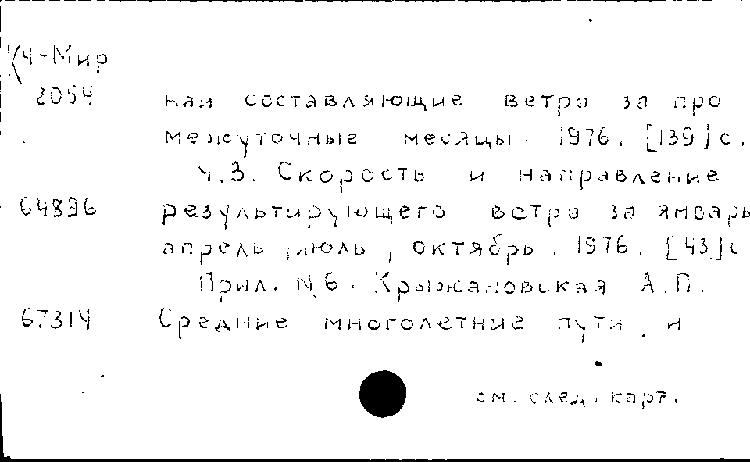 К4-Мир
2054 ная составляющие ветра за про
межуточные месяцы. 1976. [139]с.
ч.3. Скорость и направление
64896 результирующего ветра за январь
апрель, июль, октябрь. 1976. [43]с
Прил. №6. Крыжановская А.П.
67314 Средние многолетние пути и
см. след. карт.